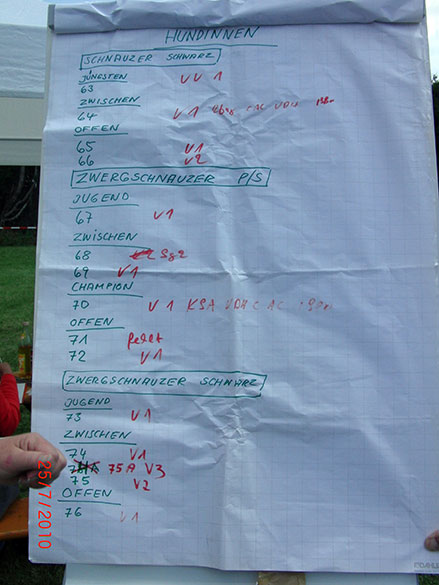 HÜNDINNEN
SCHNAUZER SCHWARZ
JÜNGSTEN VV 1
63
ZWISCHEN
64 V1 CAC VDH
OFFEN
65 V1
66 V2
ZWERGSCHNAUZER P/S
JUGEND
67 V1
ZWISCHEN
68 Sg2
69 V1
CHAMPION
70 V1 KSA VDH CAC
OFFEN
71 fehlt
72 V1
ZWERGSCHNAUZER SCHWARZ
JUGEND
73 V1
ZWISCHEN
74 V1
75A V3
75 V2
OFFEN
76 V1
25/7/2010